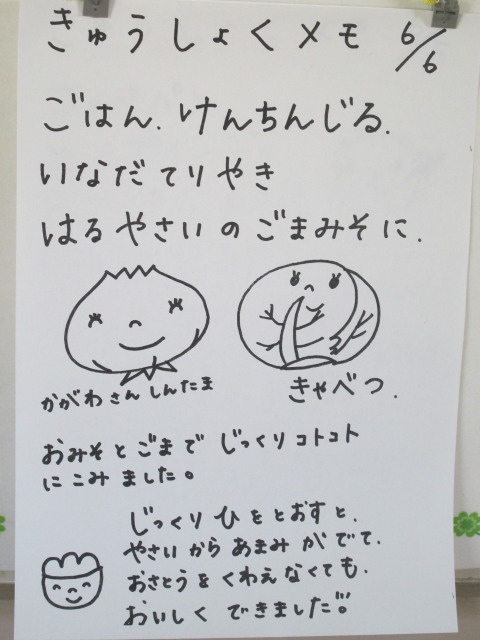 きゅうしょくメモ 6/6
ごはん.けんちんじる.
いなだてりやき
はるやさいのごまみそに.
かがわさんしんたま
きゃべつ.
おみそとごまでじっくりコトコト
にこみました。
じっくりひをとおすと、
やさいからあまみがでて、
おさとうをくわえなくても、
おいしくできました!!